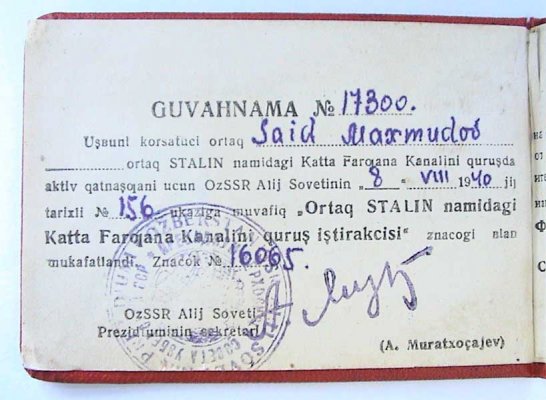 GUVAHNAMA № 17300.
Uşвuni korsatuci ortaq Said Maxmudov
ortaq STALIN namidagi Katta Farƣana Kanalini quruşda
aktiv qatnaşqani ucun OzSSR Alij Sovetinin „8“ VIII 1940 jij
tarixli № 156 ukaziga muvafiq „Ortaq STALIN namidagi
Katta Farƣana Kanalini quruş iştirakcisi“ znacogi вilan
mukafatlandi. Znacok № 16065.
OzSSR Alij Soveti
Prezidiuminin sekretari
(A. Muratxoçajev)